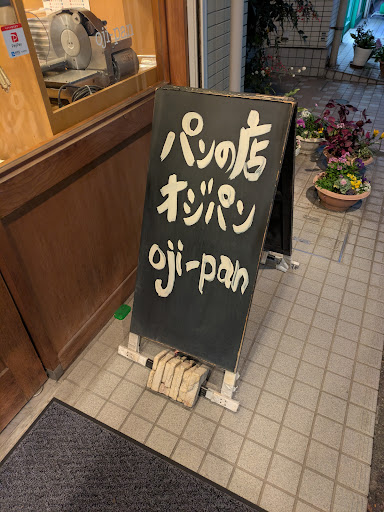 パンの店
オジパン
oji-pan